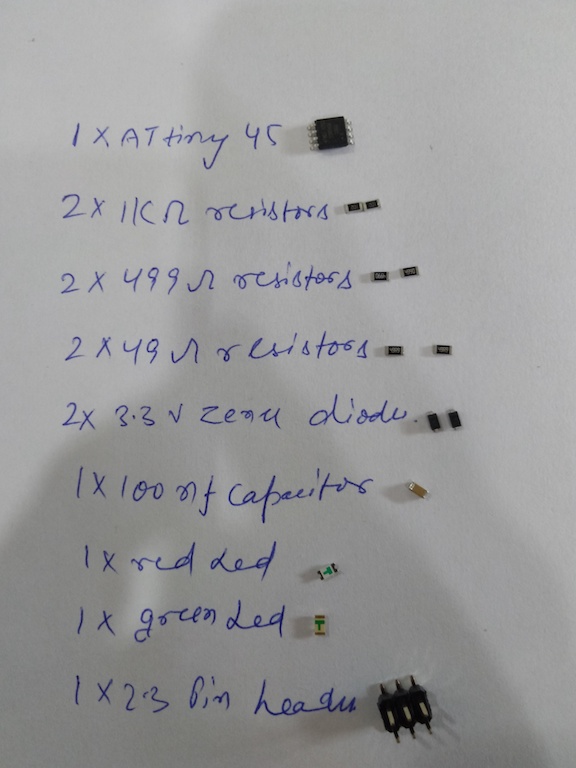 1 X ATtiny 45
2 X 1KΩ resistors
2 X 499Ω resistors
2 X 49Ω resistors
2X 3.3 V zener diode
1 X 100 nf capacitor
1 X red Led
1 X green Led
1 X 2.3 Pin header